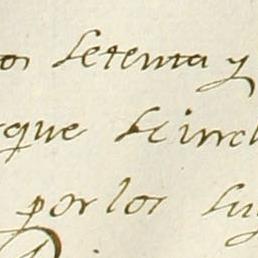 os setenta y
que se incl
por los su